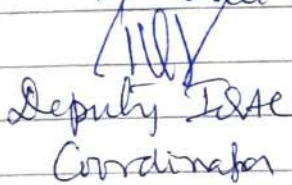 Deputy IQAC
Coordinator